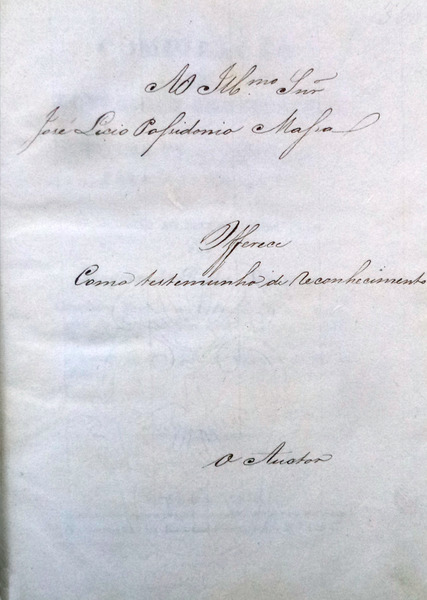 Ao Ill.mo Snr
José Lucio Passidonio Massa
Offerece
Como testemunho de reconhecimento
O Auctor